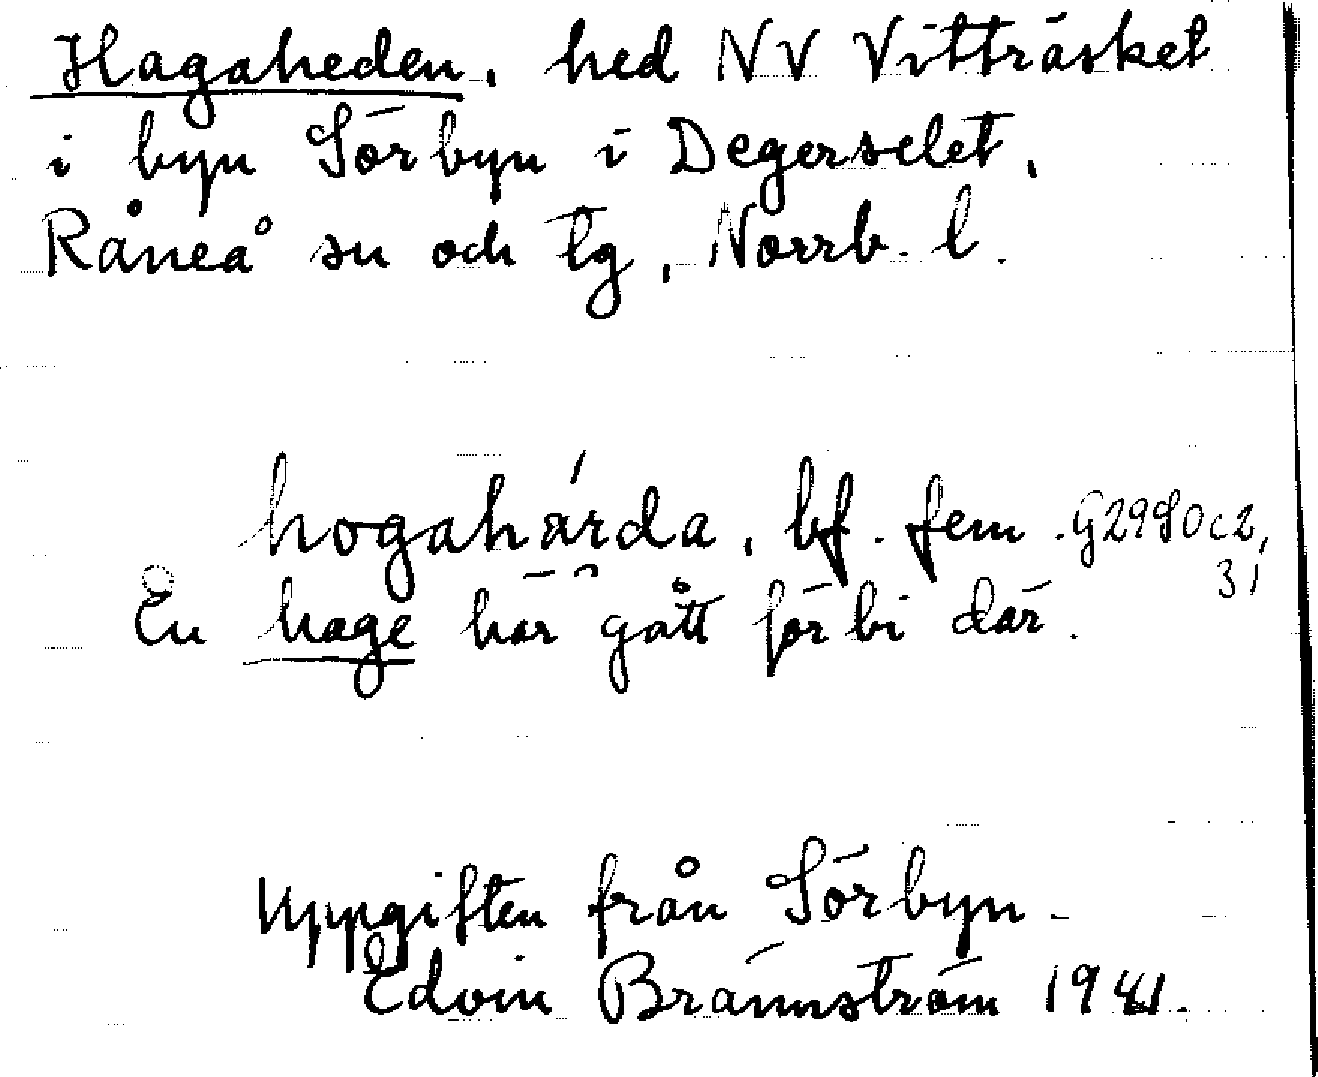 Hagaheden, hed NV Vitträsket
i byn Sörbyn i Degerselet,
Råneå sn och tg, Norrb. l.
hogahärda, bf. fem. G2980c2,
31
En hage har gått förbi där.
Uppgiften från Sörbyn.
Edvin Brännström 1941.